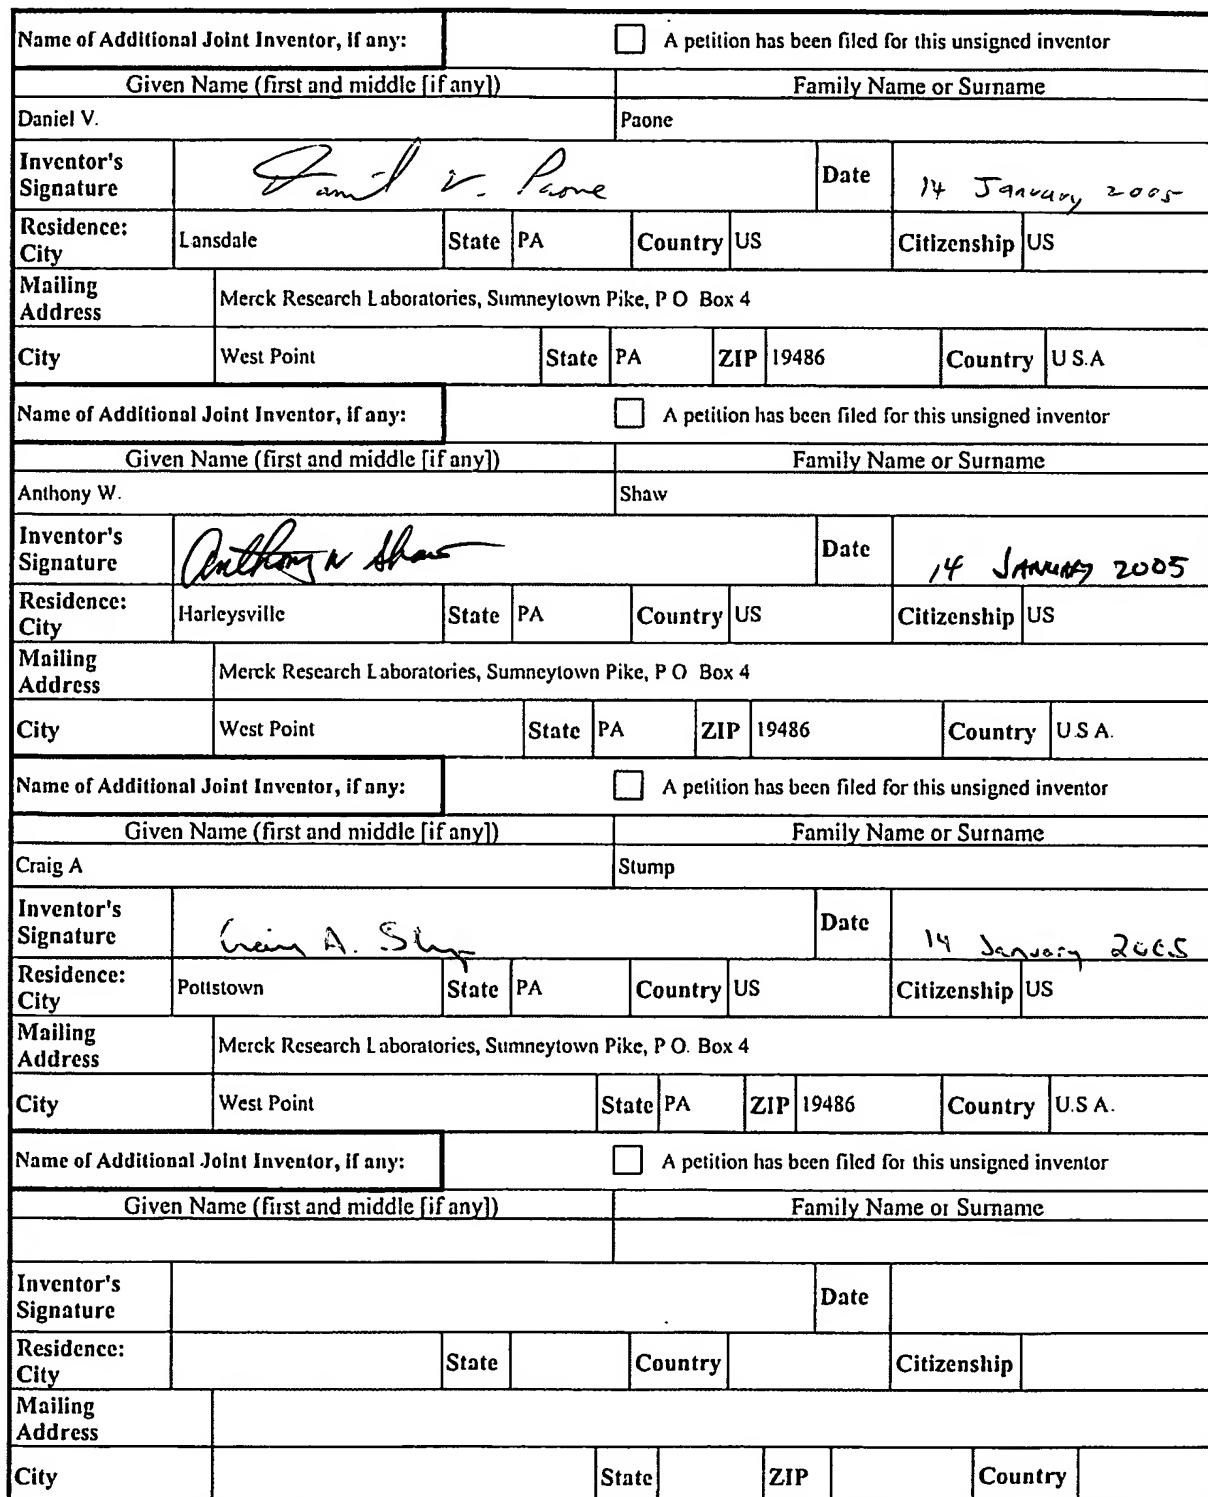 Name of Additional Joint Inventor, if any: A petition has been filed for this unsigned inventor
Given Name (first and middle [if any]) Family Name or Surname
Daniel V. Paone
Inventor's Signature Daniel V. Paone Date 14 January 2005
Residence: City Lansdale State PA Country US Citizenship US
Mailing Address Merck Research Laboratories, Sumneytown Pike, P O Box 4
City West Point State PA ZIP 19486 Country U S.A
Name of Additional Joint Inventor, if any: A petition has been filed for this unsigned inventor
Given Name (first and middle [if any]) Family Name or Surname
Anthony W. Shaw
Inventor's Signature Anthony W Shaw Date 14 JANUARY 2005
Residence: City Harleysville State PA Country US Citizenship US
Mailing Address Merck Research Laboratories, Sumneytown Pike, P O Box 4
City West Point State PA ZIP 19486 Country U.S A.
Name of Additional Joint Inventor, if any: A petition has been filed for this unsigned inventor
Given Name (first and middle [if any]) Family Name or Surname
Craig A Stump
Inventor's Signature Craig A. Stump Date 14 January 2005
Residence: City Pottstown State PA Country US Citizenship US
Mailing Address Merck Research Laboratories, Sumneytown Pike, P O. Box 4
City West Point State PA ZIP 19486 Country U.S A.
Name of Additional Joint Inventor, if any: A petition has been filed for this unsigned inventor
Given Name (first and middle [if any]) Family Name or Surname
Inventor's Signature Date
Residence: City State Country Citizenship
Mailing Address
City State ZIP Country